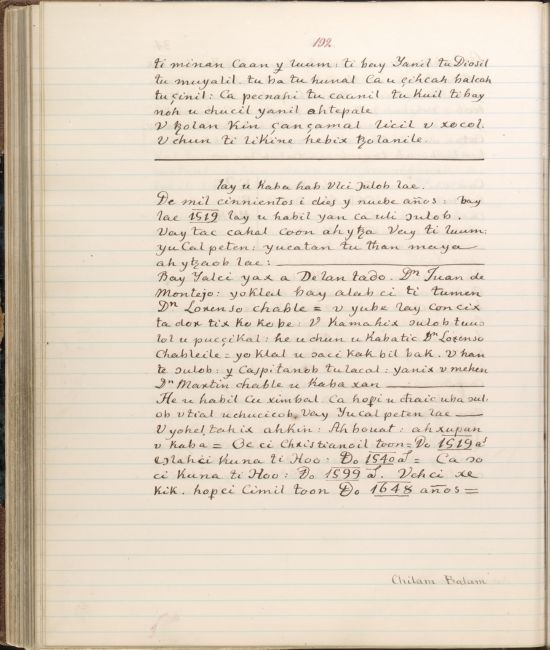 192
ti minan Caan y luum: ti bay Yanil tu Diosil
tu muyalil. tu ba tu hunal Ca u çihçah balcah
tuçinil: Ca pecnahi tu caanil tu kuil ti bay
noh u chucil yanil ahtepale
V ꜩolan Kin çançamal licil v xocol.
V chun ti likine hebix ꜩolanile.
lay u Kaba hab Vlci Sulob lae.
De mil cinnientos i dies y nuebe años: bay
lae 1519 lay u habil yan ca uli sulob.
Vay tac cahal coon ahyꜩa Vay ti luum:
yuCal peten: yucatan tu than maya
ahyꜩaob lae:
Bay Yalci yax a Delanlado. Dn Juan de
Montejo: yoklal bay alab ci ti tumen
Dn Lorenso chable = v yube lay con cix
ta dox tix Ko Ko be: V Kamahix sulob tuus
lol u pucçikal: he u chun u Kabatic Dn Lorenso
Chableile = yoklal u saci Kak bil bak. V han
te sulob: y Caspitanob tulacal: yanix v mehen
Dn Martin chable u Kaba xan
He u habil Cu ximbal. Ca hopi u chaic uba sul
ob vtial uchucicob. Vay Yucal peten lae
V yohel tahix ahkin: Ah bouat: ah xupan
v Kaba = Oc ci Christianoil toon = Do 1519 as
eslahci Kuna ti Hoo: Do 1540 as = Ca so
ci Kuna ti Hoo: Do 1599 as. Vchci xe
Kik. hopci Cimil toon Do 1648 años =
Chilam Balam